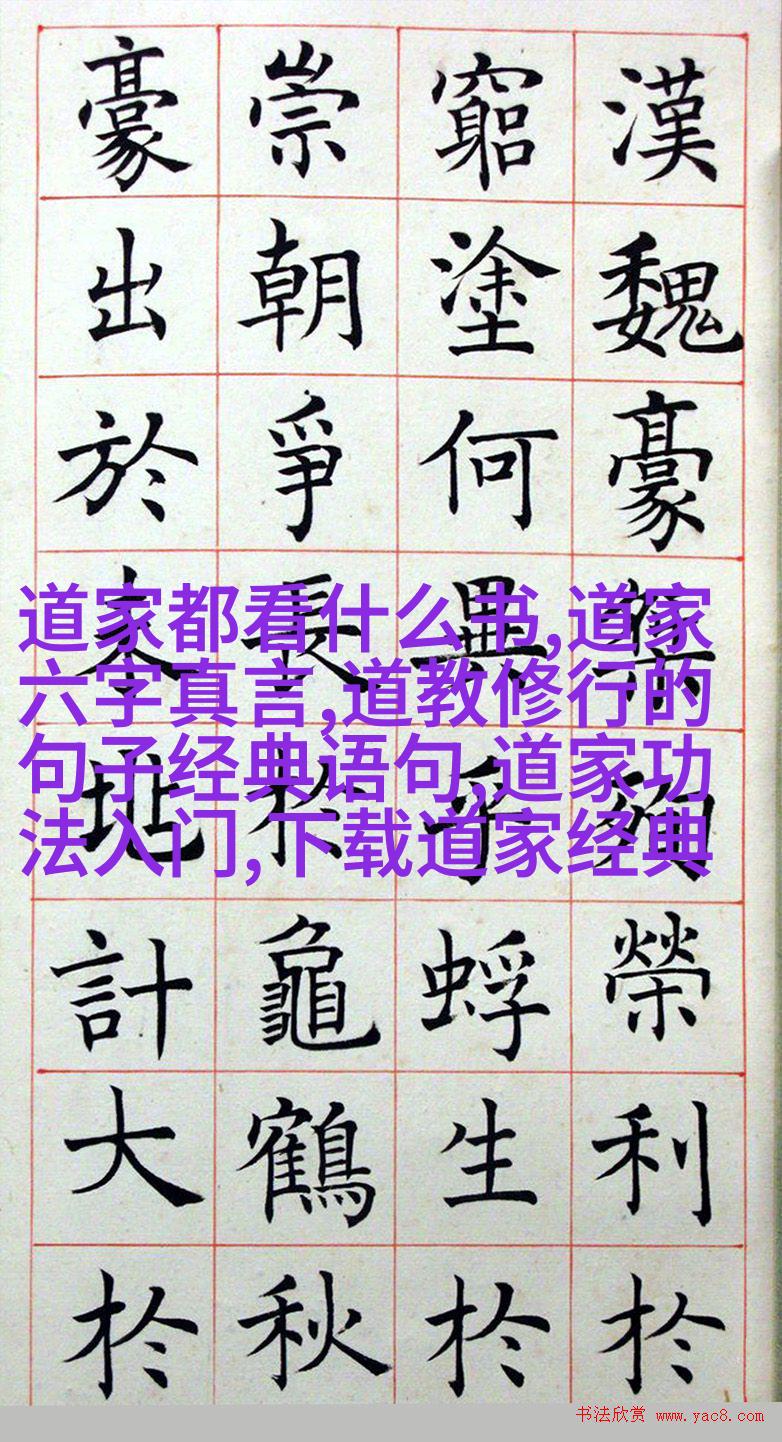 漢魏豪殉榮利於
窮塗何異乎蜉生於
崇朝爭長於龜鶴秋
豪出於計大於
道家都看什么书,道家
六字真言,道教修行的
句子经典语句,道家功
法入门,下载道家经典
书法欣赏 www.yac8.com